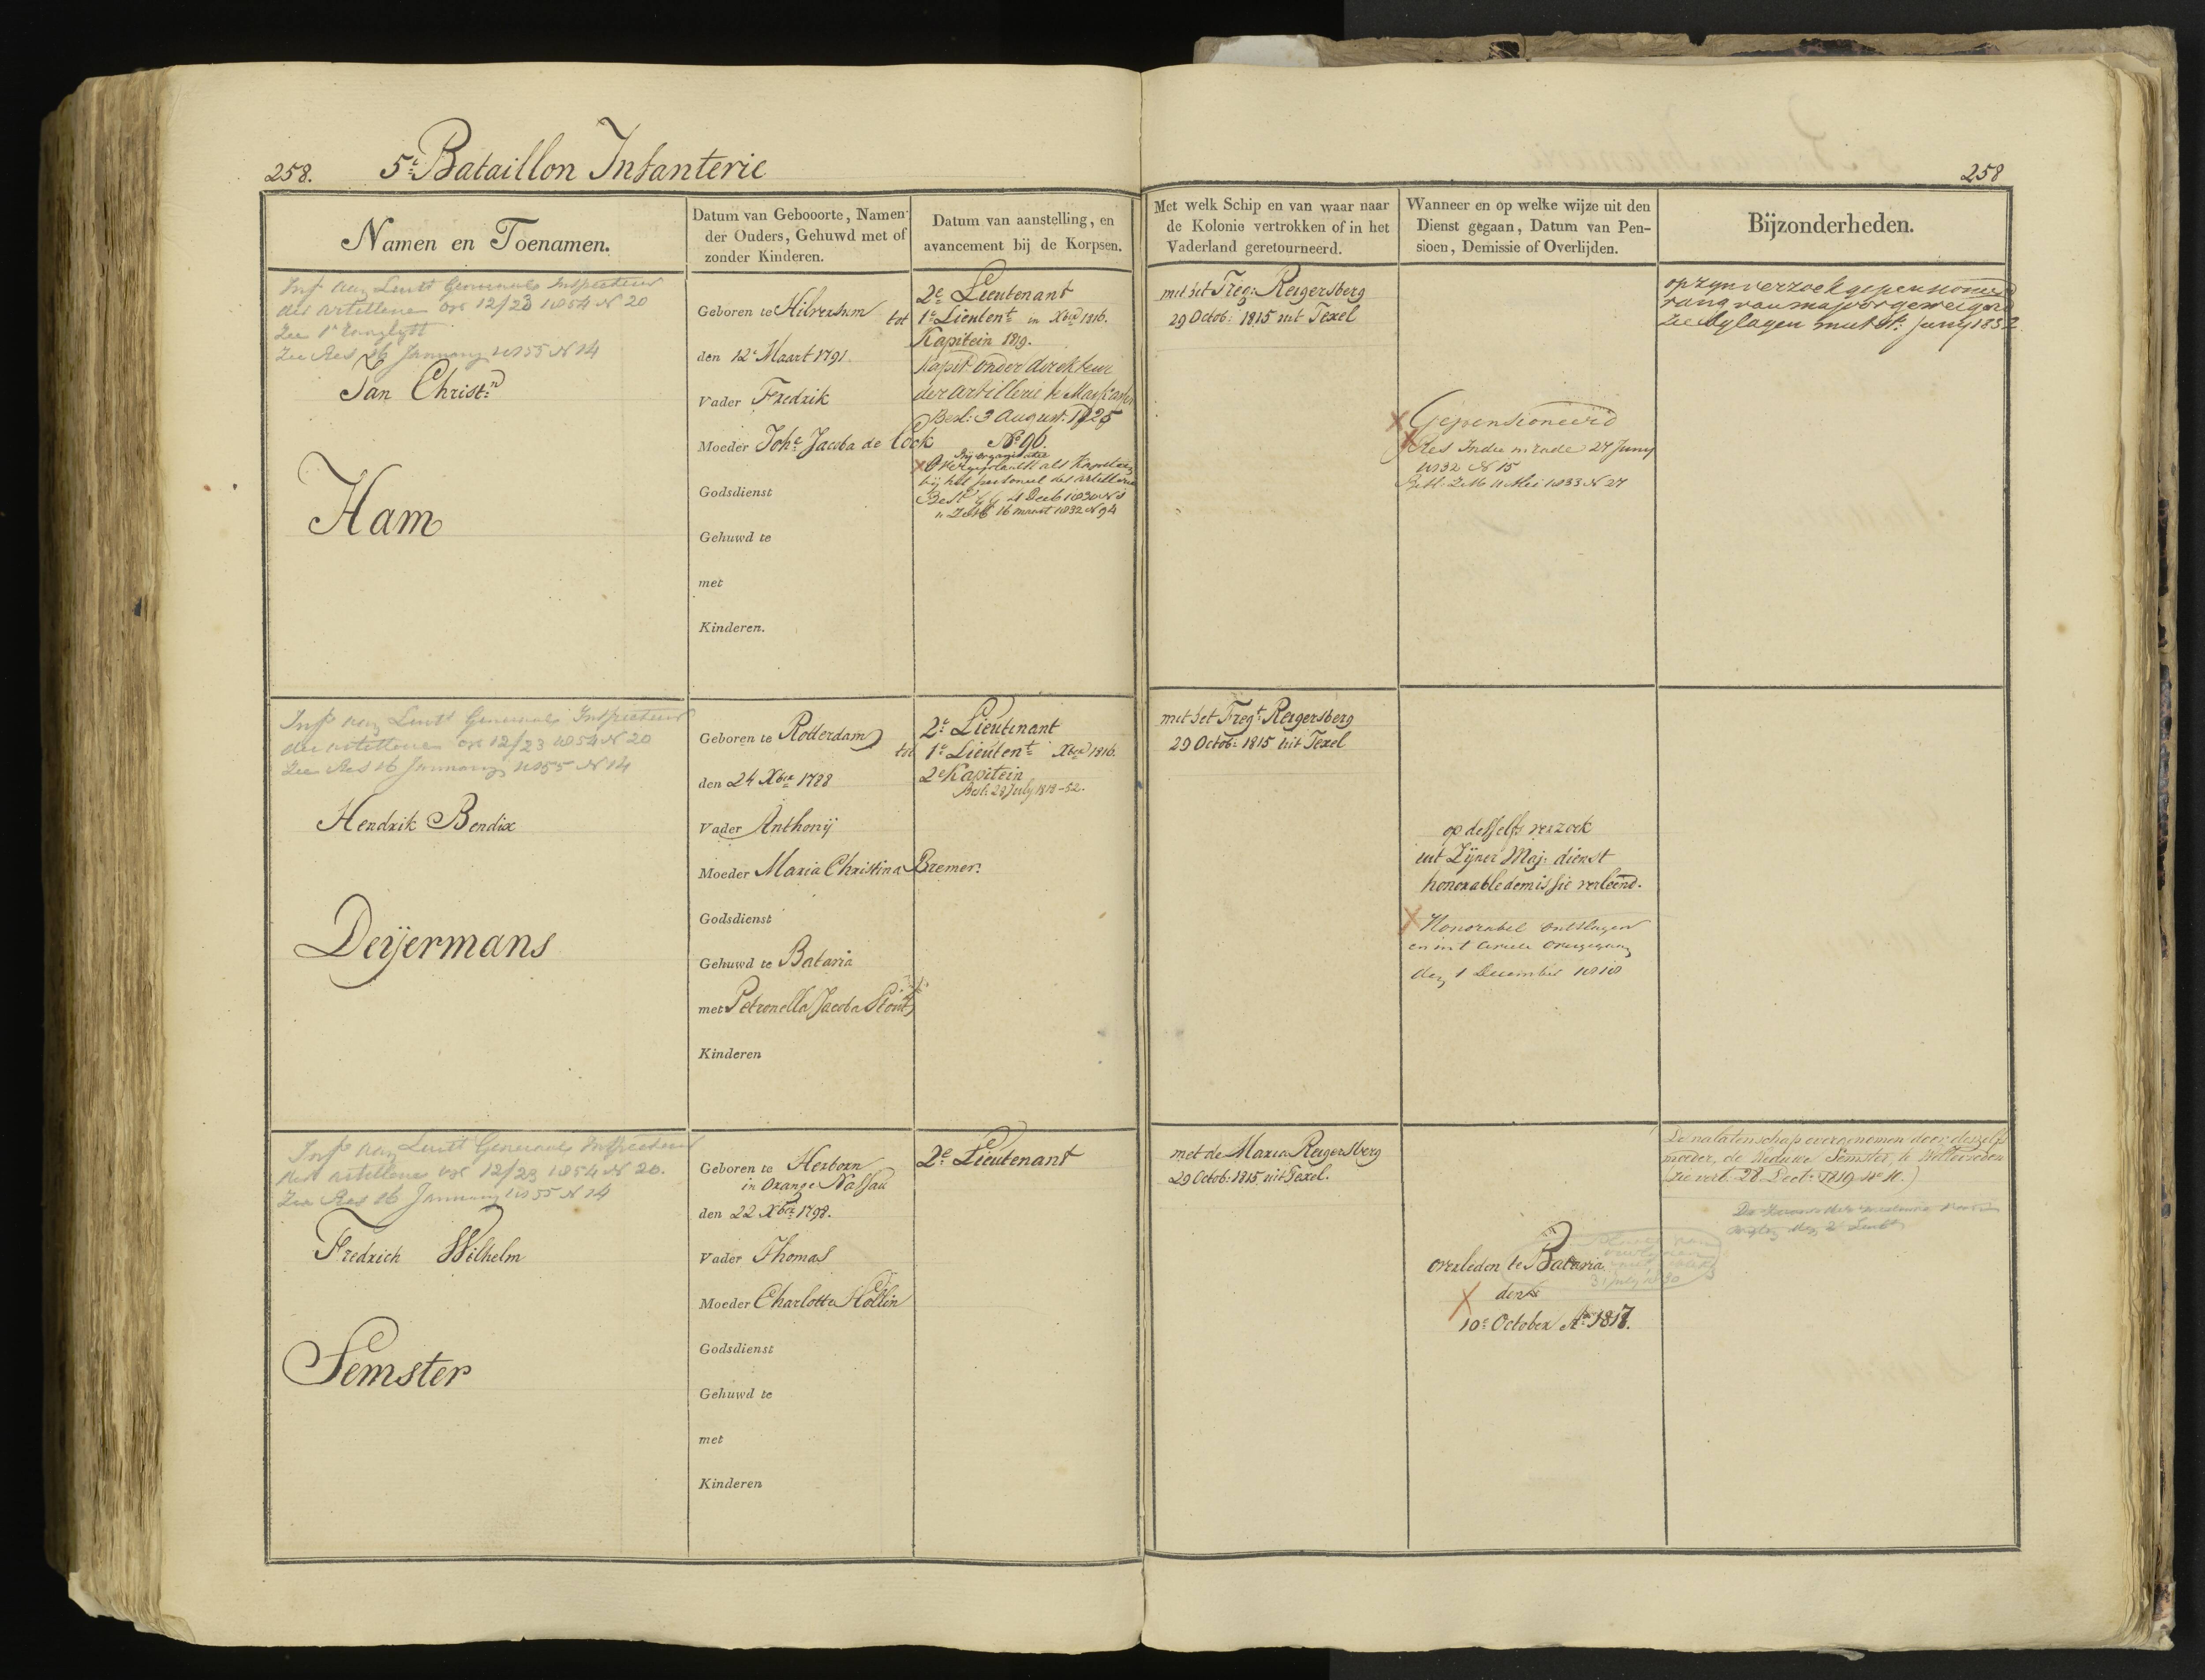 258.
5e Bataillon Infanterie
258
Namen en Toenamen.
Datum van Gebooorte, Namen
der Ouders, Gehuwd met of
zonder Kinderen.
Datum van aanstelling, en
avancement bij de Korpsen.
Met welk Schip en van waar naar
de Kolonie vertrokken of in het
Vaderland geretourneerd.
Wanneer en op welke wijze uit den
Dienst gegaan, Datum van Pen-
sioen, Demissie of Overlijden.
Bijzonderheden.
Generaals Inspecteur
der Artillerie 12/23 1854 N 20
Zie
Zie Res 16 January 1855 N 14
Jan Christn
Ham
Geboren te Hilversum
den 12e Maart 1791
Vader Fredrik
Moeder Johe Jacoba de Cock
Godsdienst
Gehuwd te
met
Kinderen.
2e Lieutenant
tot 1e Lieutent in Xber 1816.
Kapitein 1819.
Kapit onder direkteur
der artillerie te
Besl: 3 August: 1825
No 96.
Bij organisatie
als Kapitein
bij het personeel der artillerie
16 maart 1832 N 94
met het Freg: Reigersberg
29 Octob: 1815 uit Texel
Gepensioneerd
Res Indie in rade 27 Juny
1832 N 15
11 Mei 1833 N 27
op zyn verzoek gepensioneerd
rang van majoor geweigerd
zie bylagen Juny 1832
Generaals Inspecteur
der Artillerie 12/23 1854 N 20
Zie Res 16 January 1855 N 14
Hendrik Bendix
Deijermans
Geboren te Rotterdam
den 24 Xber 1788
Vader Anthonij
Moeder Maria Christina Bremer.
Godsdienst
Gehuwd te Batavia
met Petronella Jacoba
Kinderen
2e Lieutenant
tot 1e Lieutent Xber 1816.
2e Kapitein
Besl: 28 July 1818-52.
met het Fregt Reigersberg
29 Octob: 1815 uit Texel
op desselfs verzoek
uit Zijner Maj: dienst
honorable demissie verleend.
Honorabel ontslagen
en in 't civiele overgegaan
den 1 December 1818
Generaals Inspecteur
der artillerie 12/23 1854 N 20.
Zie Res 16 January 1855 N 14
Fredrich Wilhelm
Semster
Geboren te Herborn
in Orange Nassau
den 22 Xber 1798.
Vader Thomas
Moeder Charlotte
Godsdienst
Gehuwd te
met
Kinderen
2e Lieutenant
met de Maria Reigersberg
29 Octob: 1815 uit Texel.
overleden te Batavia
31 July
den
10e October Ao 1817.
De nalatenschap overgenomen door desselfs
moeder, de Weduwe Semster, te Weltevreden
(zie 28 1819 No 11.)